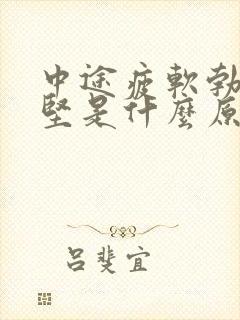 中途疲軟勃
堅是什麼原
呂斐宜